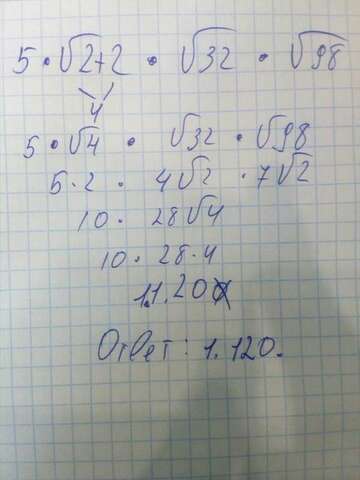 5 · √2+2 · √32 · √98
4
5 · √4 · √32 · √98
5 · 2 · 4√2 · 7√2
10 · 28√4
10 · 28 · 4
1.120
Ответ: 1.120.